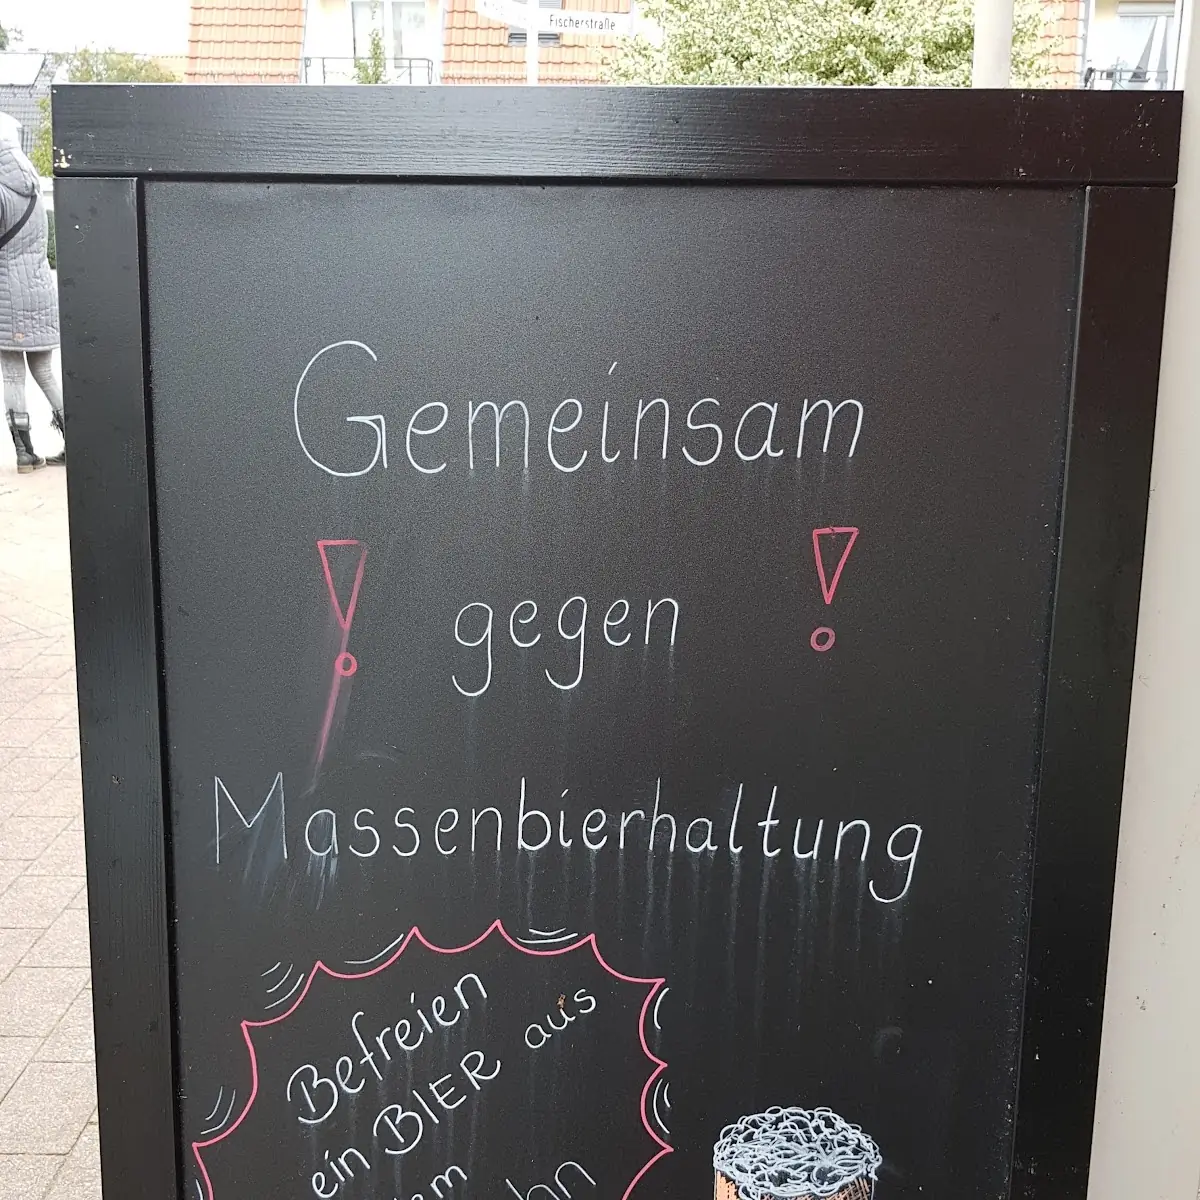 Fischerstraße
Gemeinsam
! gegen !
Massenbierhaltung
Befreien
ein BIER aus